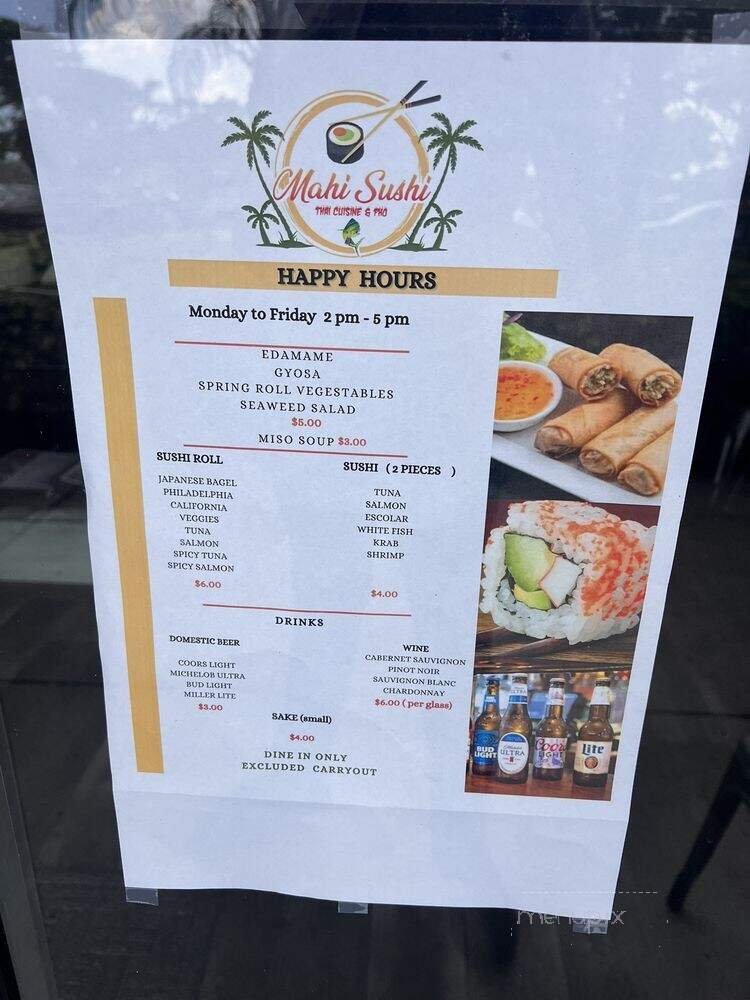 Mahi Sushi
THAI CUISINE & PHO
HAPPY HOURS
Monday to Friday 2 pm - 5 pm
EDAMAME
GYOSA
SPRING ROLL VEGESTABLES
SEAWEED SALAD
$5.00
MISO SOUP $3.00
SUSHI ROLL
JAPANESE BAGEL
PHILADELPHIA
CALIFORNIA
VEGGIES
TUNA
SALMON
SPICY TUNA
SPICY SALMON
$6.00
SUSHI ( 2 PIECES )
TUNA
SALMON
ESCOLAR
WHITE FISH
KRAB
SHRIMP
$4.00
DRINKS
DOMESTIC BEER
COORS LIGHT
MICHELOB ULTRA
BUD LIGHT
MILLER LITE
$3.00
WINE
CABERNET SAUVIGNON
PINOT NOIR
SAUVIGNON BLANC
CHARDONNAY
$6.00 ( per glass)
SAKE (small)
$4.00
DINE IN ONLY
EXCLUDED CARRYOUT
BUD
LIGHT
ULTRA
Coors
LIGHT
Lite
menupix